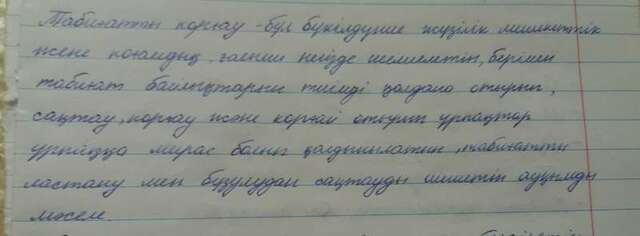 Табиғатты қорғау - бұл бүкілдүние жүзілік мемлекеттік
және қоғамдық, ғылыми негізде шешілетін, берілген
табиғат байлықтарын тиімді қолдана отырып,
сақтау, қорғау және қорғай отырып ұрпақтар
ұрпаққа мирас болып қалдырылатын, табиғатты
ластану мен бүзулудан сақтауды шешетін ауқымды
мәселе.